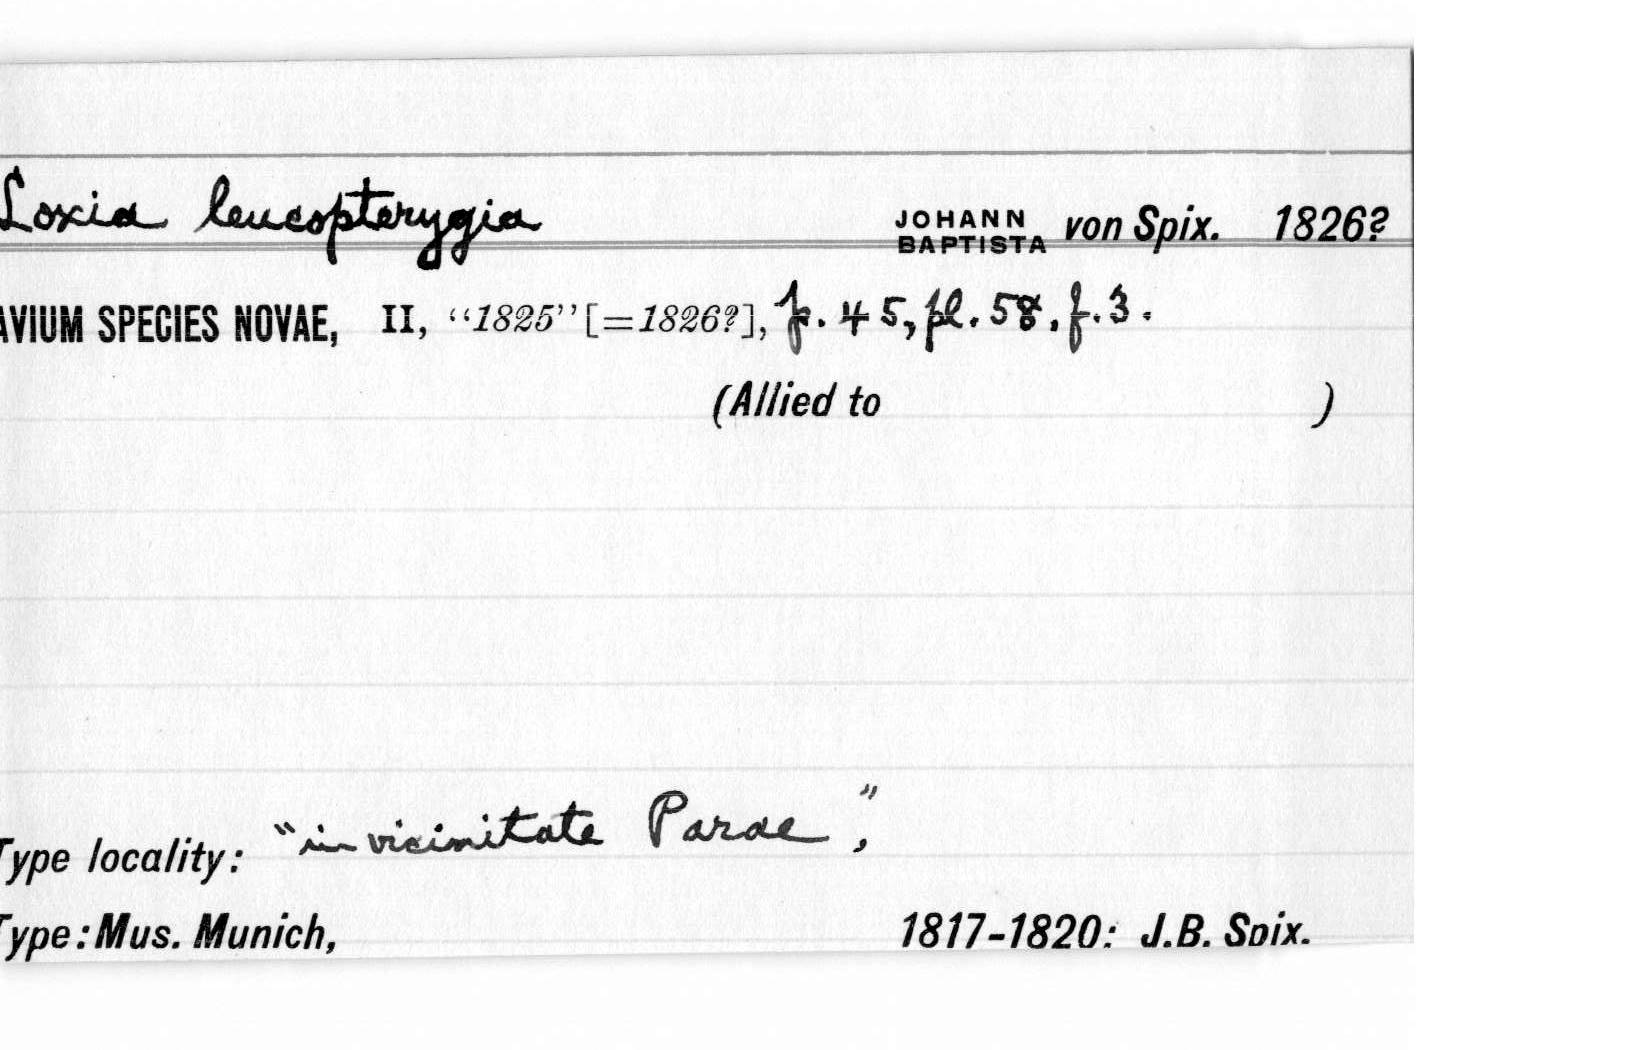 Loxia leucopterygia JOHANN BAPTISTA von Spix. 1826?
AVIUM SPECIES NOVAE, II, "1825" [=1826?], p. 45, pl. 58, f. 3.
(Allied to )
Type locality: "in vicinitate Parae",
Type: Mus. Munich, 1817-1820: J.B. Spix.